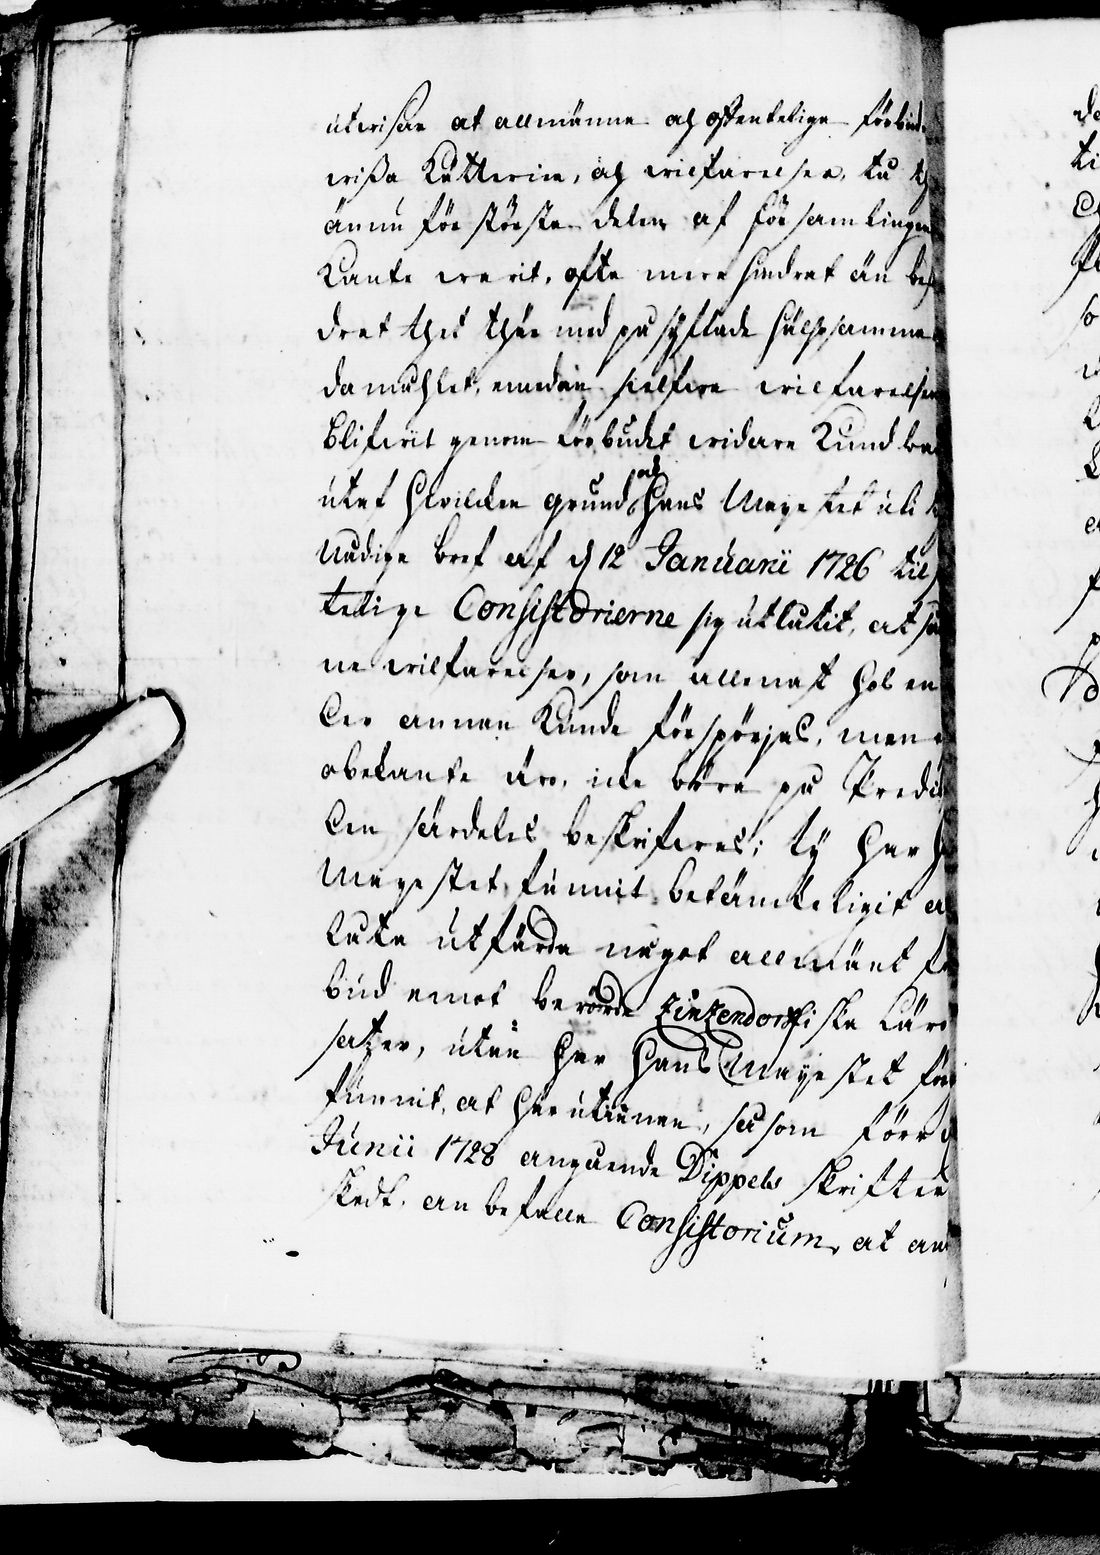 utwisar at allmänne och offentelige förbud
wissa Kätterier, och willfarelser, tå th
ännu för största delen af församlingen
Kante warit, ofta mera hindrat än bef
drat thet thär med påsyftade hälsosamma
damåhlet, emedan sielfwa willfarelsen
blifwit genom förbudet widare Kundbar
utaf hwilcken grund och Hans Mayestet uti
Nådige bref af d 12 Januarii 1726 til
telige Consistorierne sig utlåtit, at så
ne willfarelser, som allenast hos en
ler annan Kunde förspörjas, men
obekante äro, icke böra på Predik
len särdeles beskrifwas; ty har H
Mayestet funnit betänckeligit at
låta utfärda något allmänt för
bud emot berörde Zinzendorfiske Läro
satzer, utan har Hans Mayestet för
funnit, at härutinnan, såsom förr
Junii 1728 angående Dippels skrifter
skedt, anbefalla Consistorium, at an